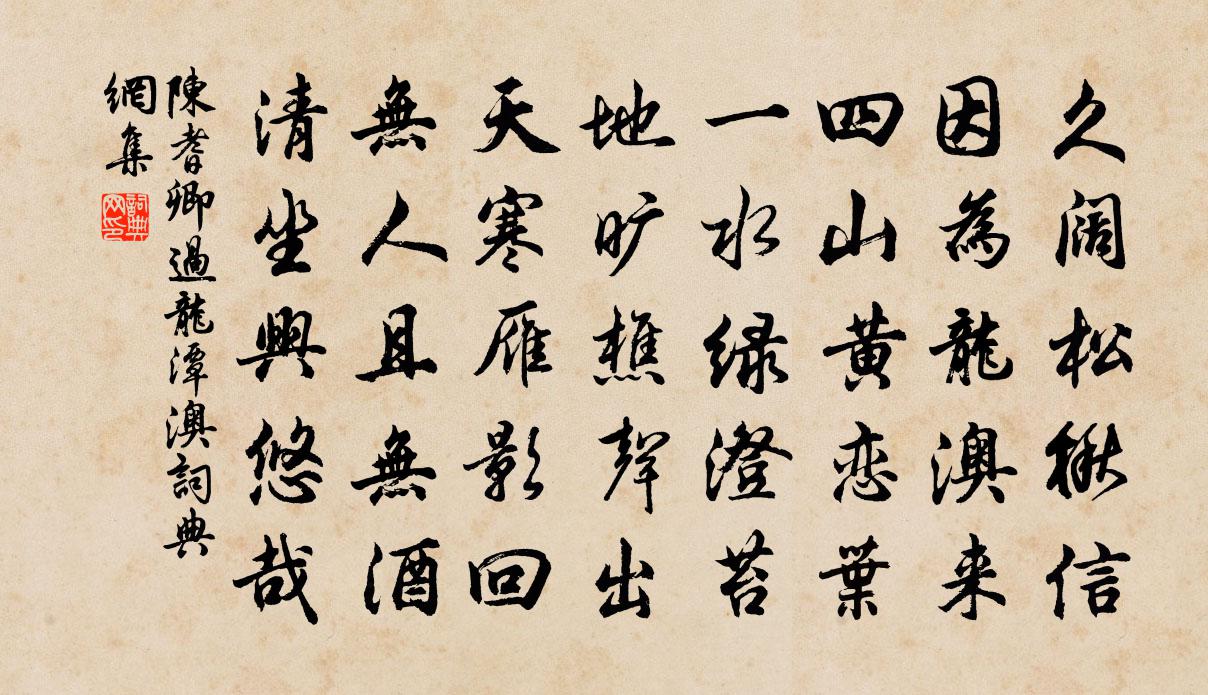 久阔松楸信
因為龍澳来
四山黄恋葉
一水绿澄苔
地旷樵聲出
天寒雁影回
無人且無酒
清坐興悠哉
陳耆卿過龍潭澳詞典
網集
詞典網印